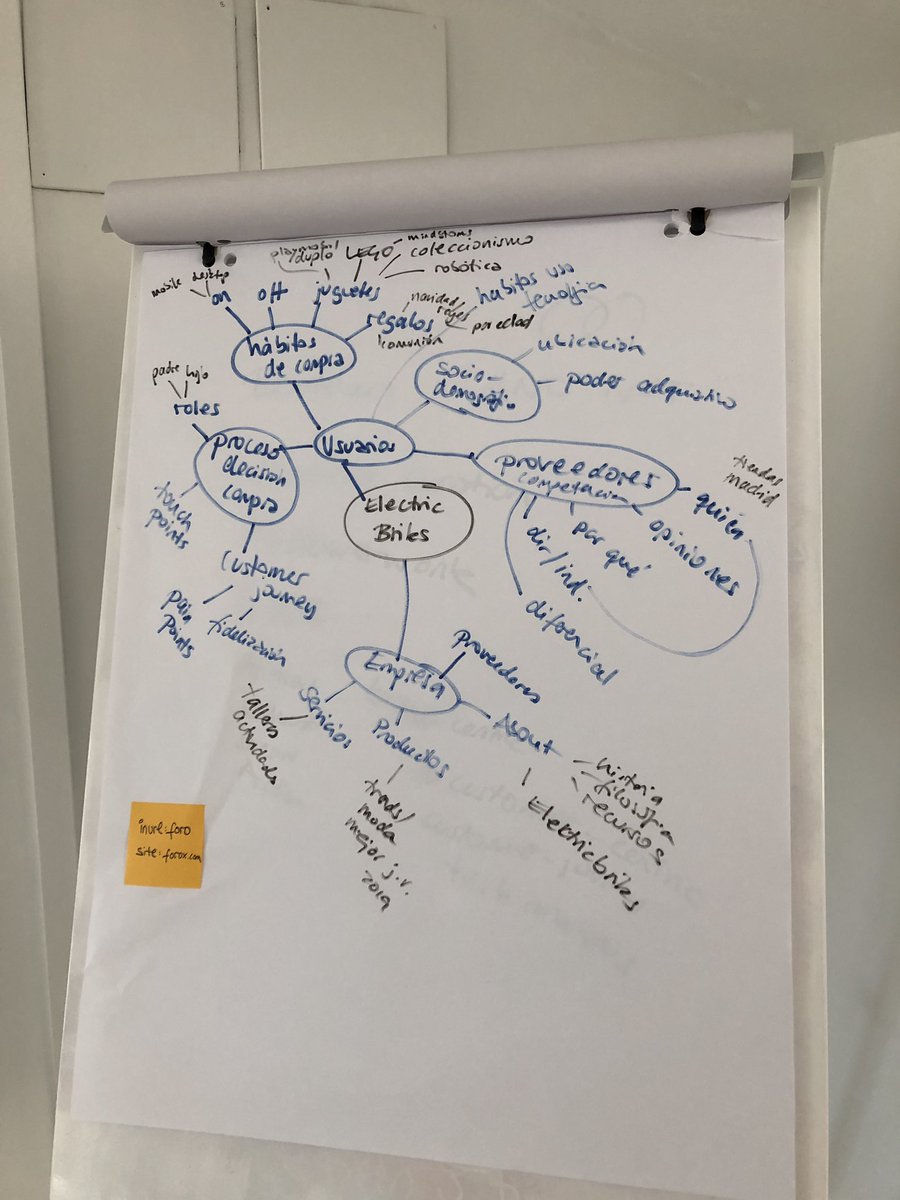 playmobil/
duplo
LEGO
mindstoms
coleccionismo
robótica
mobile
desktop
on
off
juguetes
regalos
navidad
reyes
por edad
comunión
hábitos uso
hábitos
de compra
ubicación
socio-
poder
padre hijo
roles
proceso
decisión
compra
Usuarios
proveedores
competencia
tiendas
madrid
quién
opiniones
por qué
dir/ind.
diferencial
touch
points
Electric
Briks
Customer
journey
pain
points
fidelización
Empresa
Proveedores
servicios
talleres
actividades
Productos
About
historia
filosofía
recursos
Electricbriks
trads/
moda
mejor j.v.
2019
inurl:foro
site:forox.com